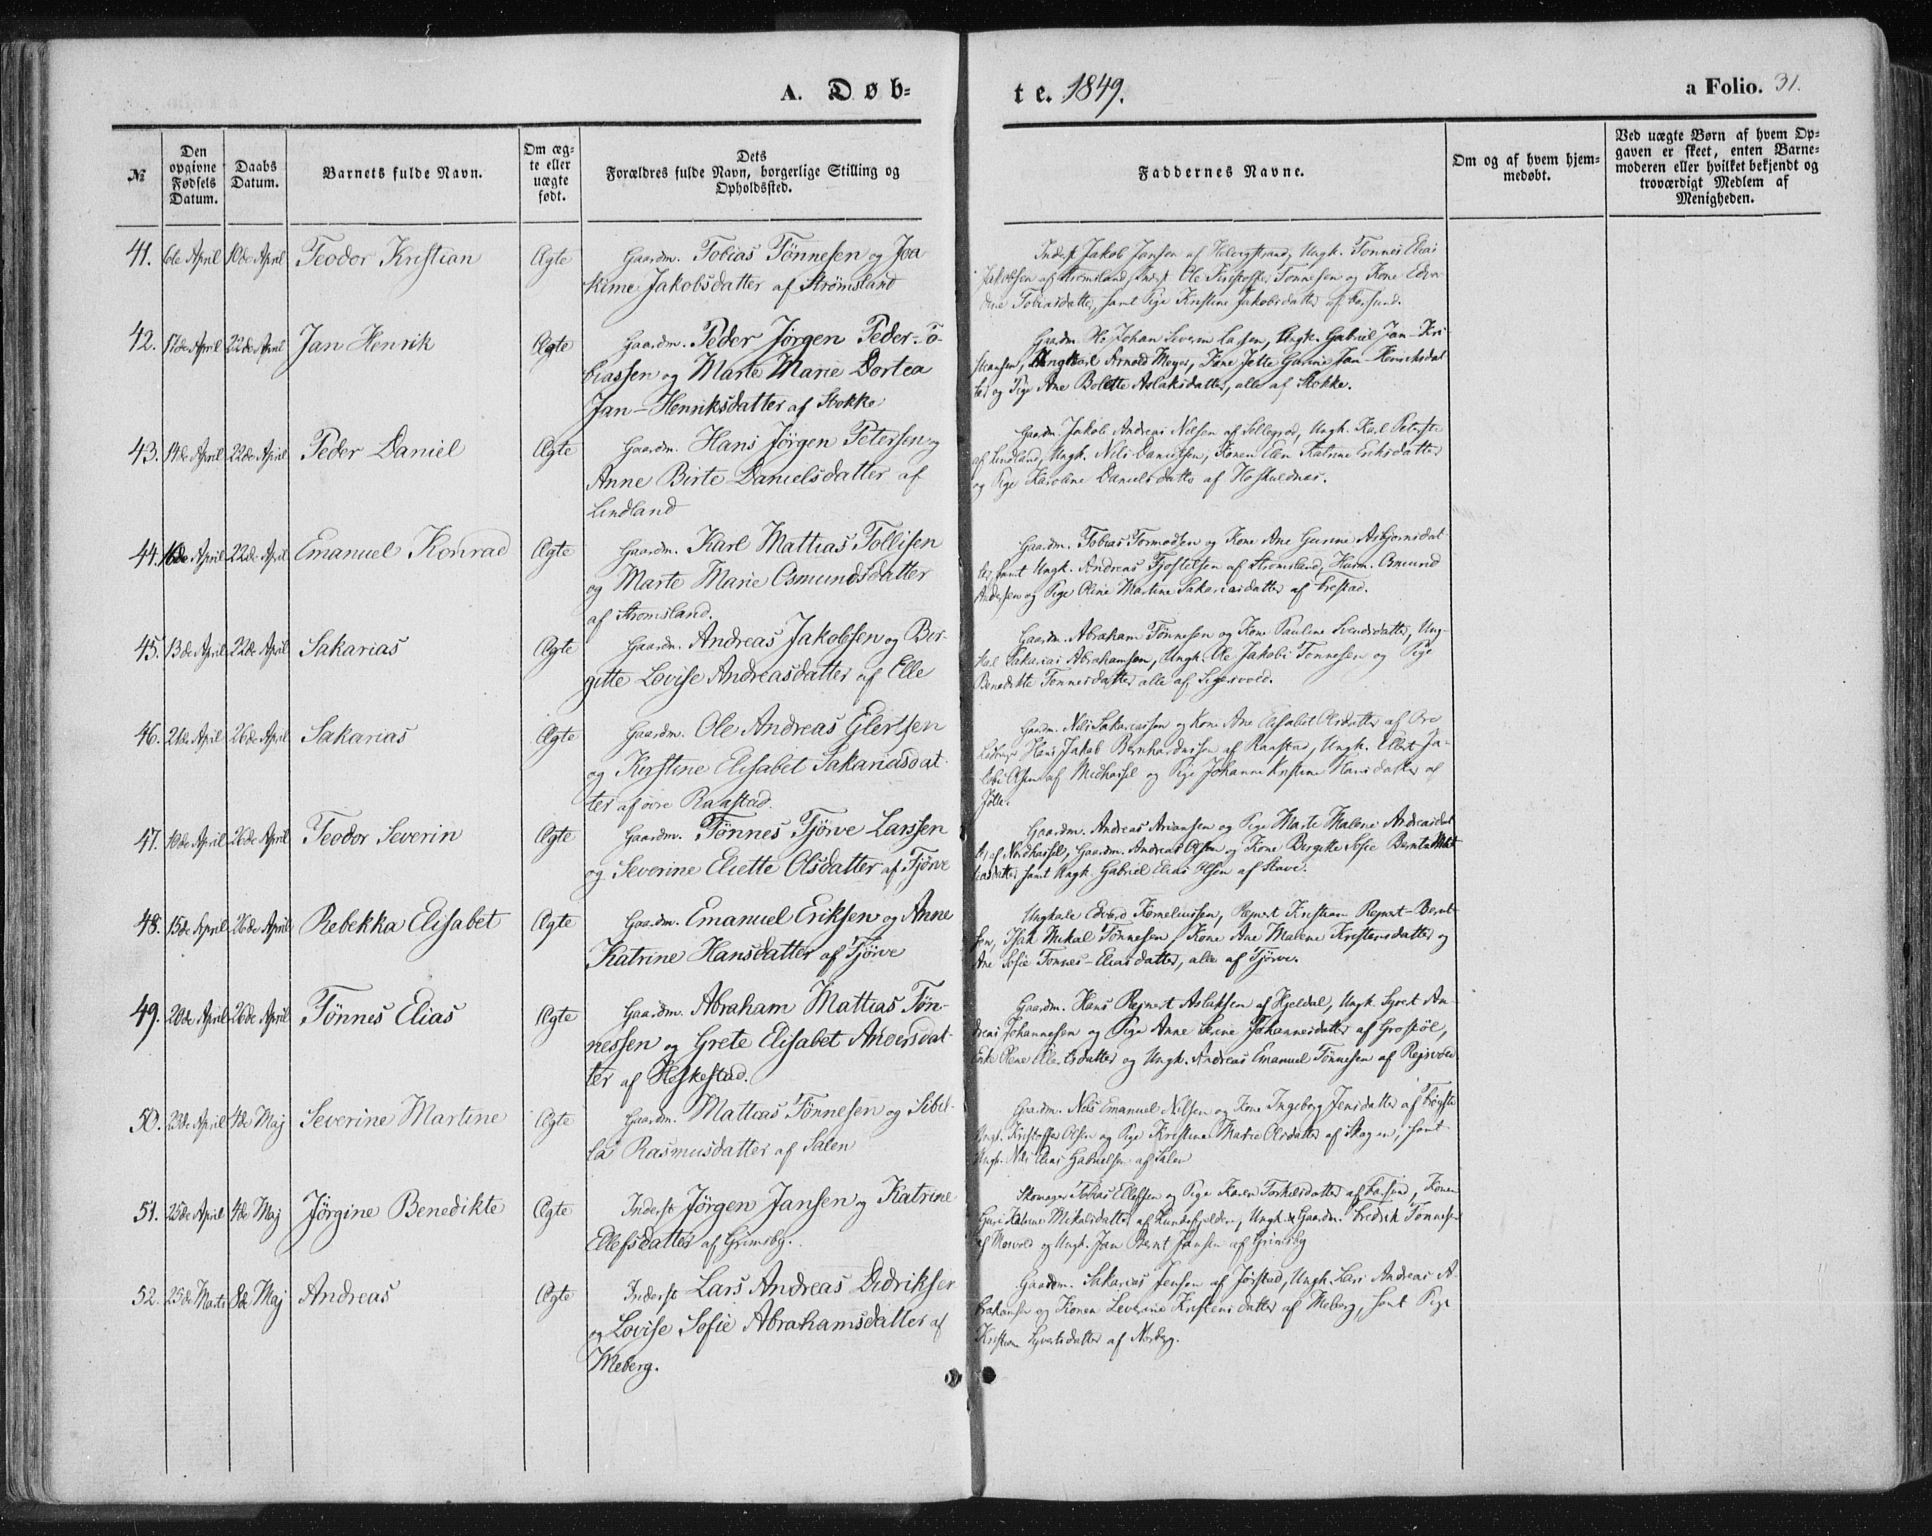 A. Døb-
te. 1849.
a Folio. 31.
№
Den opgivne Fødsels Datum.
Daabs Datum.
Barnets fulde Navn.
Om ægte eller uægte født.
Dets Forældres fulde Navn, borgerlige Stilling og Opholdssted.
Faddernes Navne.
Om og af hvem hjemmedøbt.
Ved uægte Børn af hvem Opgaven er skeet, enten Barnemoderen eller hvilket bekjendt og troværdigt Medlem af Menigheden.
41. 6te April 10de April Teodor Kristian Ægte Gaardm. Tobias Tönnesen og Joa-
kime Jakobsdatter af Strømsland
Inderst Jakob Jansen af Ungk. Tønnes Elias
Jakobsen af Strømsland, Inderst Ole Kristoffer Tønnesen og Kone
Tobiasdatter, samt Pige Kristine Jakobsdatter af Farsund.
42. 17de April 22de April Jan Henrik Ægte Gaardm. Peder Jörgen Peder-To-
biassen og Marte Marie Dortea
Jan-Henriksdatter af Stokke
Gaardm. Johan Severin Ungk. Gabriel Jan-Kri
stiansen, Ungkarl Arnold Meyer, Kone Jette Gurine Jan-Henriksdat
ter og Pige Ane Bolette Aslaksdatter, alle af Stokke.
43. 14de April 22de April Peder Daniel Ægte Gaardm. Hans Jörgen Petersen og
Anne Birte Danielsdatter af
Lindland
Gaardm. Jakob Andreas Nilsen af Ungk. Karl
af Lindland, Ungk. Nils Danielsen, Konen Elen Katrine Eriksdatter
og Pige Karoline Danielsdatter af
44. 16de April 22de April Emanuel Konrad Ægte Gaardm. Karl Mattias Tollisen
og Marte Marie Osmundsdatter
af Strømsland.
Gaardm. Tobias Tormodsen og Kone Ane Gurine Asbjørnsdat
ter samt Ungk. Andreas af Strømsland, Osmund
Andersen og Pige Oline Martine Sakariasdatter af
45. 13de April 22de April Sakarias Ægte Gaardm. Andreas Jakobsen og Ber-
gitte Lovise Andreasdatter af Elle
Gaardm. Abraham Tønnesen og Kone Pauline Svendsdatter, Ung-
karl Sakarias Abrahamsen, Ungk. Ole Jakob Tønnesen og Pige
Benedikte Tønnesdatter alle af Sigersvold.
46. 21de April 26de April Sakarias Ægte Gaardm. Ole Andreas Elertsen
og Kirstine Elisabet Sakariasdat-
ter af øvre Raastad.
Gaardm. Nils Sakariassen og Kone Ane Elisabet Olsdatter af
Hans Jakob Bernhardussen af Raastad, Ungk. Ellert Ja-
kob Olsen af Midhassel og Pige Johanne Kristine Hansdatter af
Jølle.
47. 10de April 26de April Teodor Severin Ægte Gaardm. Tönnes Tjörve Larssen
og Severine Eliette Olsdatter af Tjörve
Gaardm. Andreas Ariansen og Pige Marte Malene Andreasdat
ter af Nordhassel, Gaardm. Andreas Olsen og Kone Bergitte Sofie Bernt-Mat
tiasdatter samt Ungk. Gabriel Elias Olsen af Stave.
48. 15de April 26de April Rebekka Elisabet Ægte Gaardm. Emanuel Eriksen og Anne
Katrine Hansdatter af Tjörve
Ungkarle Edvard Korneliussen, Reinert Kristian Reinert-Bernt-
sen, Isak Mikal Tønnesen, Kone Ane Malene Kristensdatter og
Ane Sofie Tønnes-Eliasdatter, alle af Tjörve.
49. 20de April 26de April Tönnes Elias Ægte Gaardm. Abraham Mattias Tön-
nessen og Grete Elisabet Andersdat-
ter af Høskestad.
Gaardm. Hans Rejnert Aslaksen af Hjeldal, Ungk. Syvert An-
dreas Johannessen og Pige Anne Johannesdatter af
Enke Olene og Ungk. Andreas Emanuel Tønnesen af
50. 23de April 4de Maj Severine Martine Ægte Gaardm. Mattias Tönnesen og Sibil-
la Rasmusdatter af Salen
Gaardm. Nils Emanuel Nilsen og Kone Ingeborg Jensdatter af
Ungk. Kristoffer Olsen og Pige Kristine Marie Olsdatter af Skagen, samt
Ungk. Nils Elias Gabrielsen af Salen
51. 25de April 4de Maj Jörgine Benedikte Ægte Inderst Jörgen Jansen og Katrine
Ellefsdatter af Grimsby.
Skomager Tobias Ellefsen og Pige Karen Torkelsdatter af Farsund, Konen
Guri Katrine Mikalsdatter af Ungk. & Gaardm. Fredrik Tønnesen
af og Ungk. Jan Bernt Jansen af Grimsby
52. 25de Marts 8de Maj Andreas Ægte Inderst Lars Andreas Didriksen
og Lovise Sofie Abrahamsdatter af
Meberg.
Gaardm. Sakarias Jensen af Jørstad, Ungk. Lars Andreas A-
brahamsen og Konen Severine Kristensdatter af Meberg, samt Pige
Kristiane Syvertsdatter af Norberg.